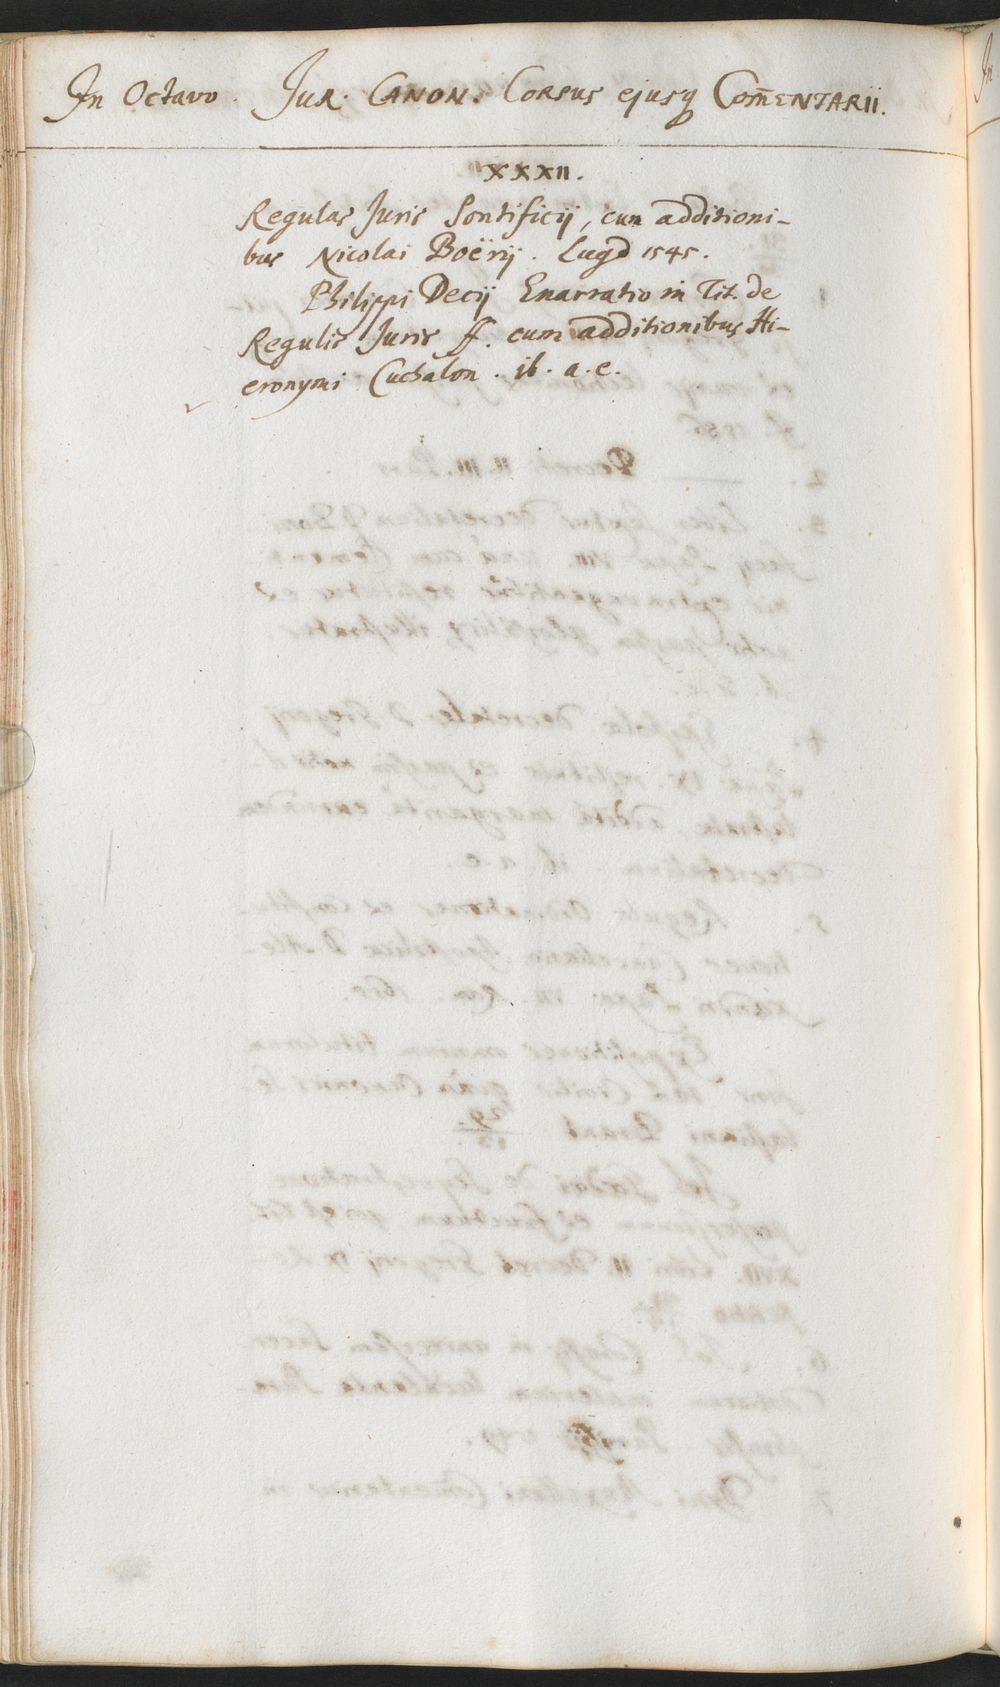 In Octavo. Jur. Canon. Corpus ejusq Com̄entarii.
XXXII.
Regulae Juris Pontificij, cum additioni-
bus Nicolai Boërij. Lugd 1545.
Philippi Decij Enarratio in Tit. de
Regulis Juris ff. cum additionibus Hi-
eronymi Cuchalon. ib. a. e.